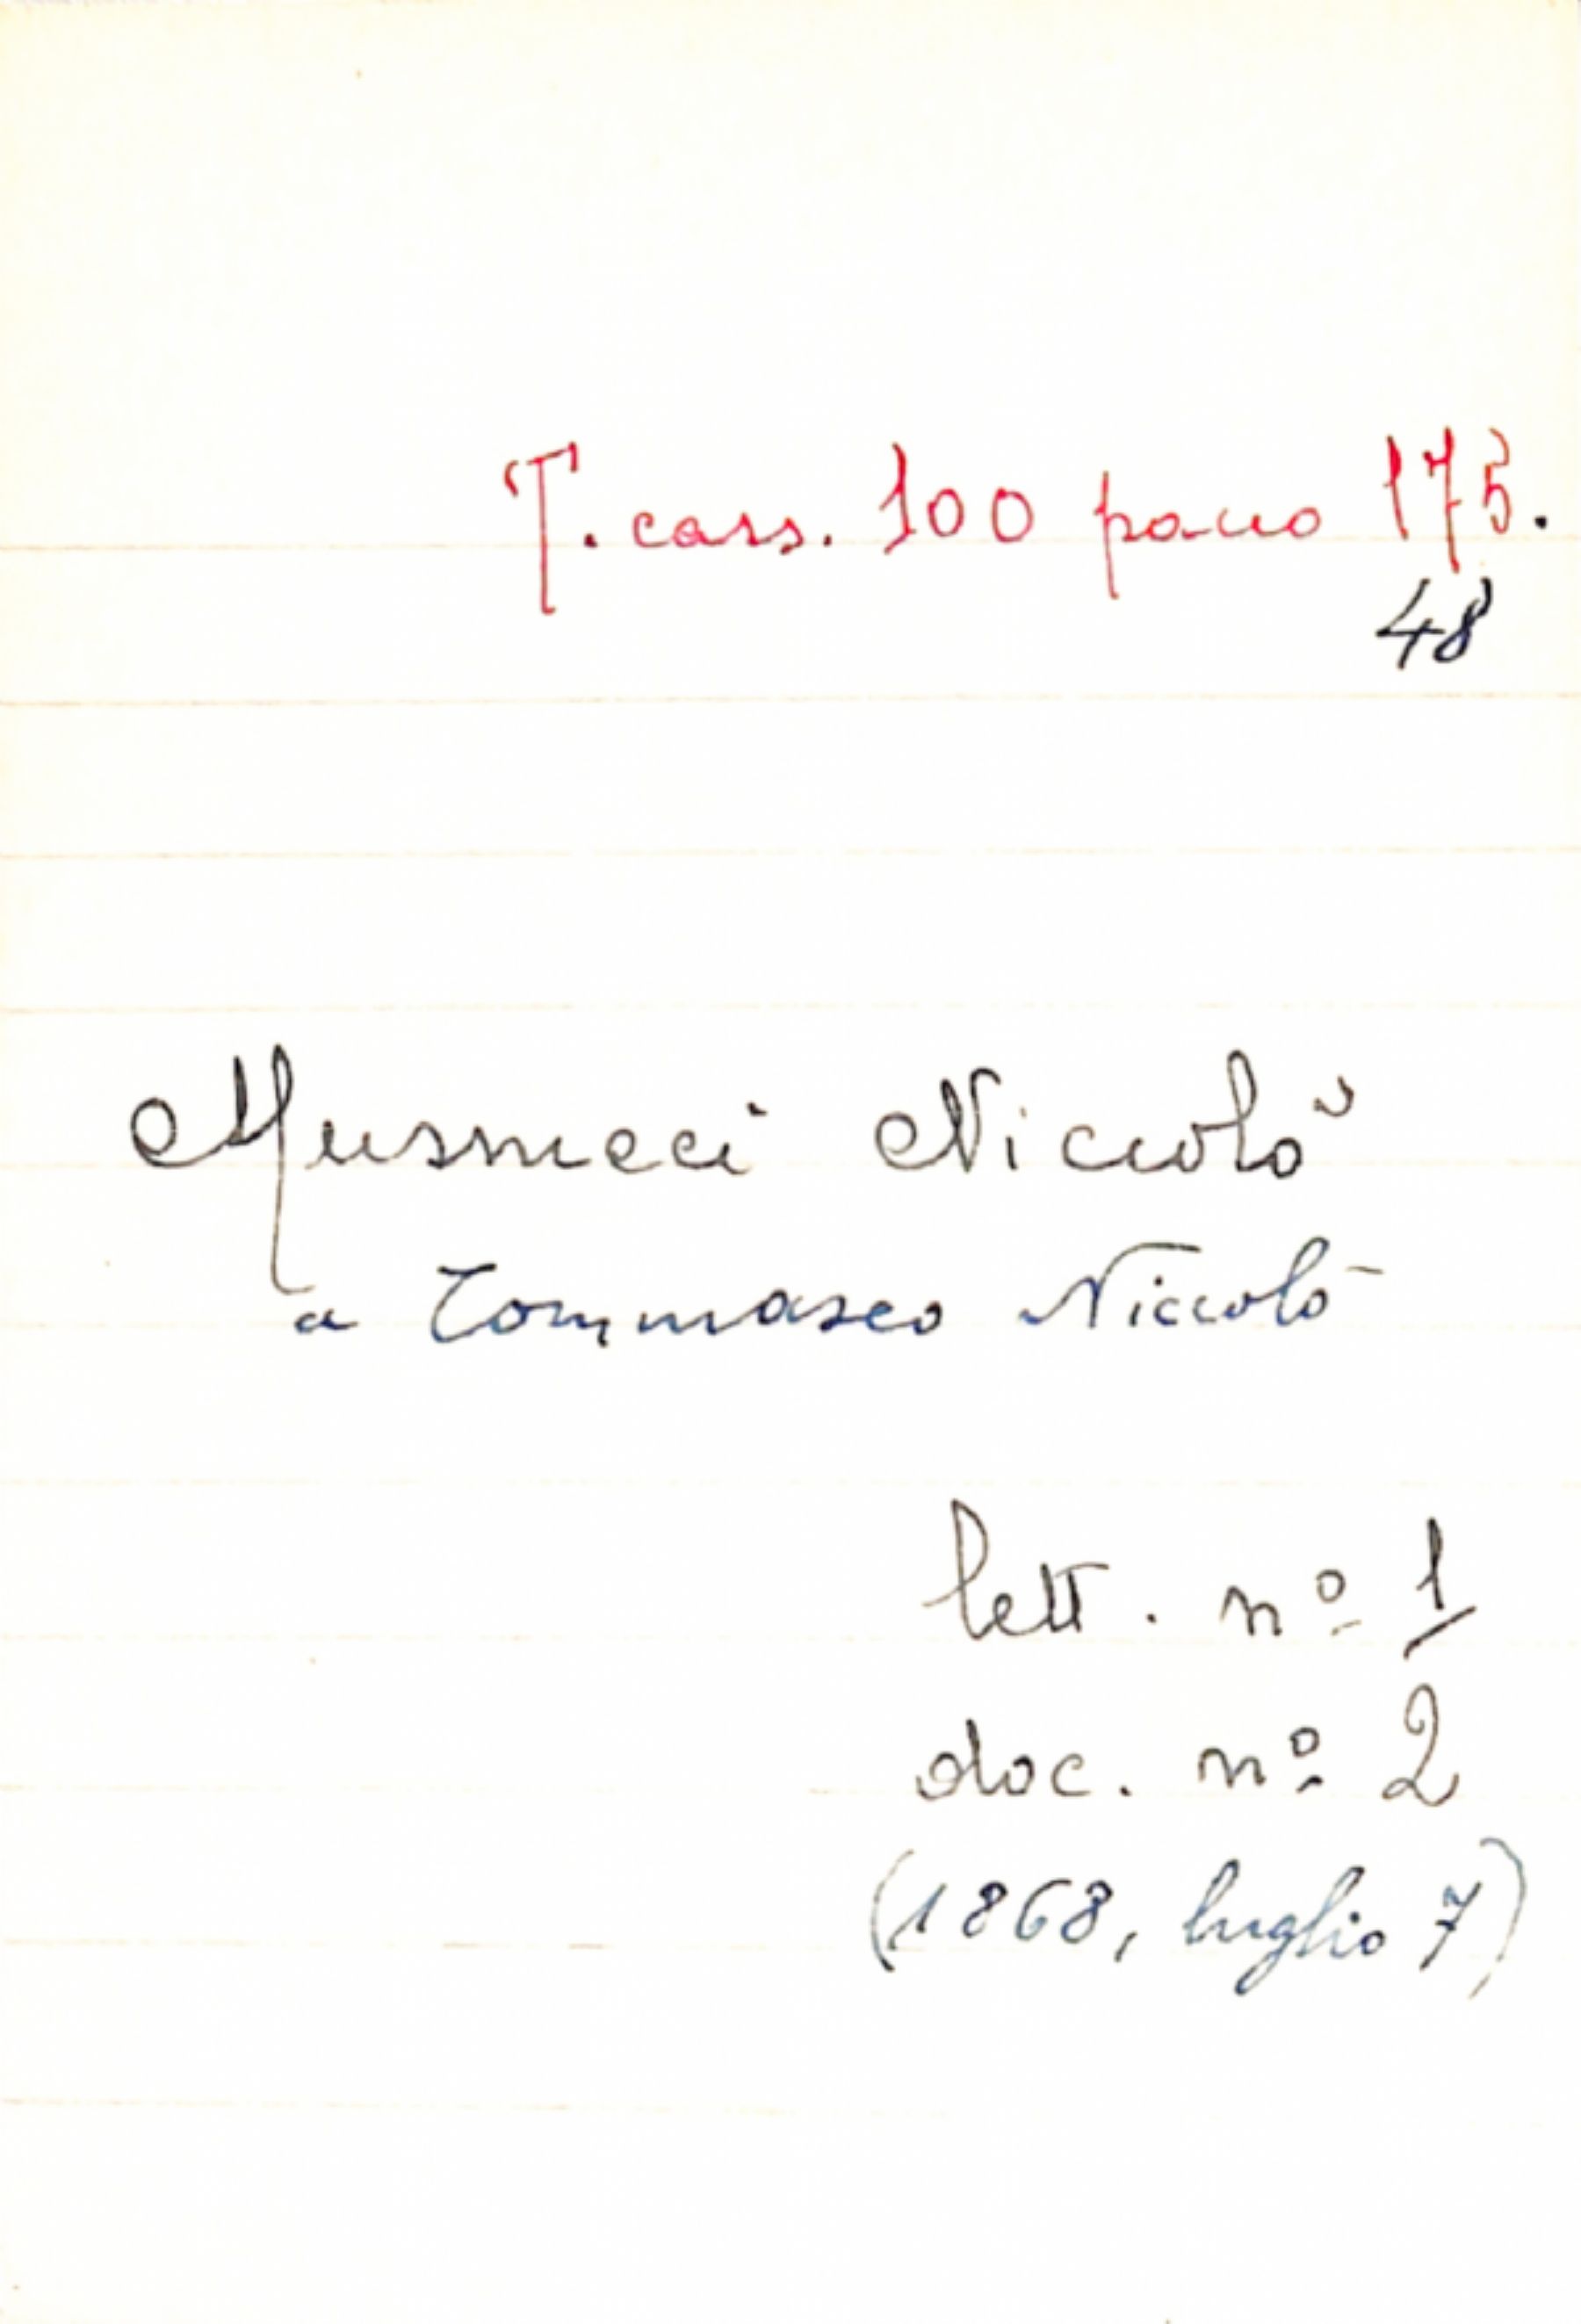 T. cass. 100 pacco 175.
48
Musmeci Niccolò
a Tommaseo Niccolò
lett. nº 1
doc. nº 2
(1868, luglio 7)